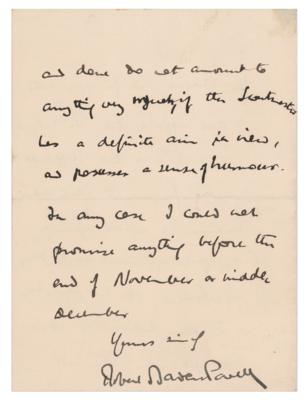 and done do not amount to
anything very if the Scoutmaster
has a definite aim in view,
and possesses a sense of humour.
In any case I could not
promise anything before the
end of November or middle
December
Yours sincy
Robert Baden Powell